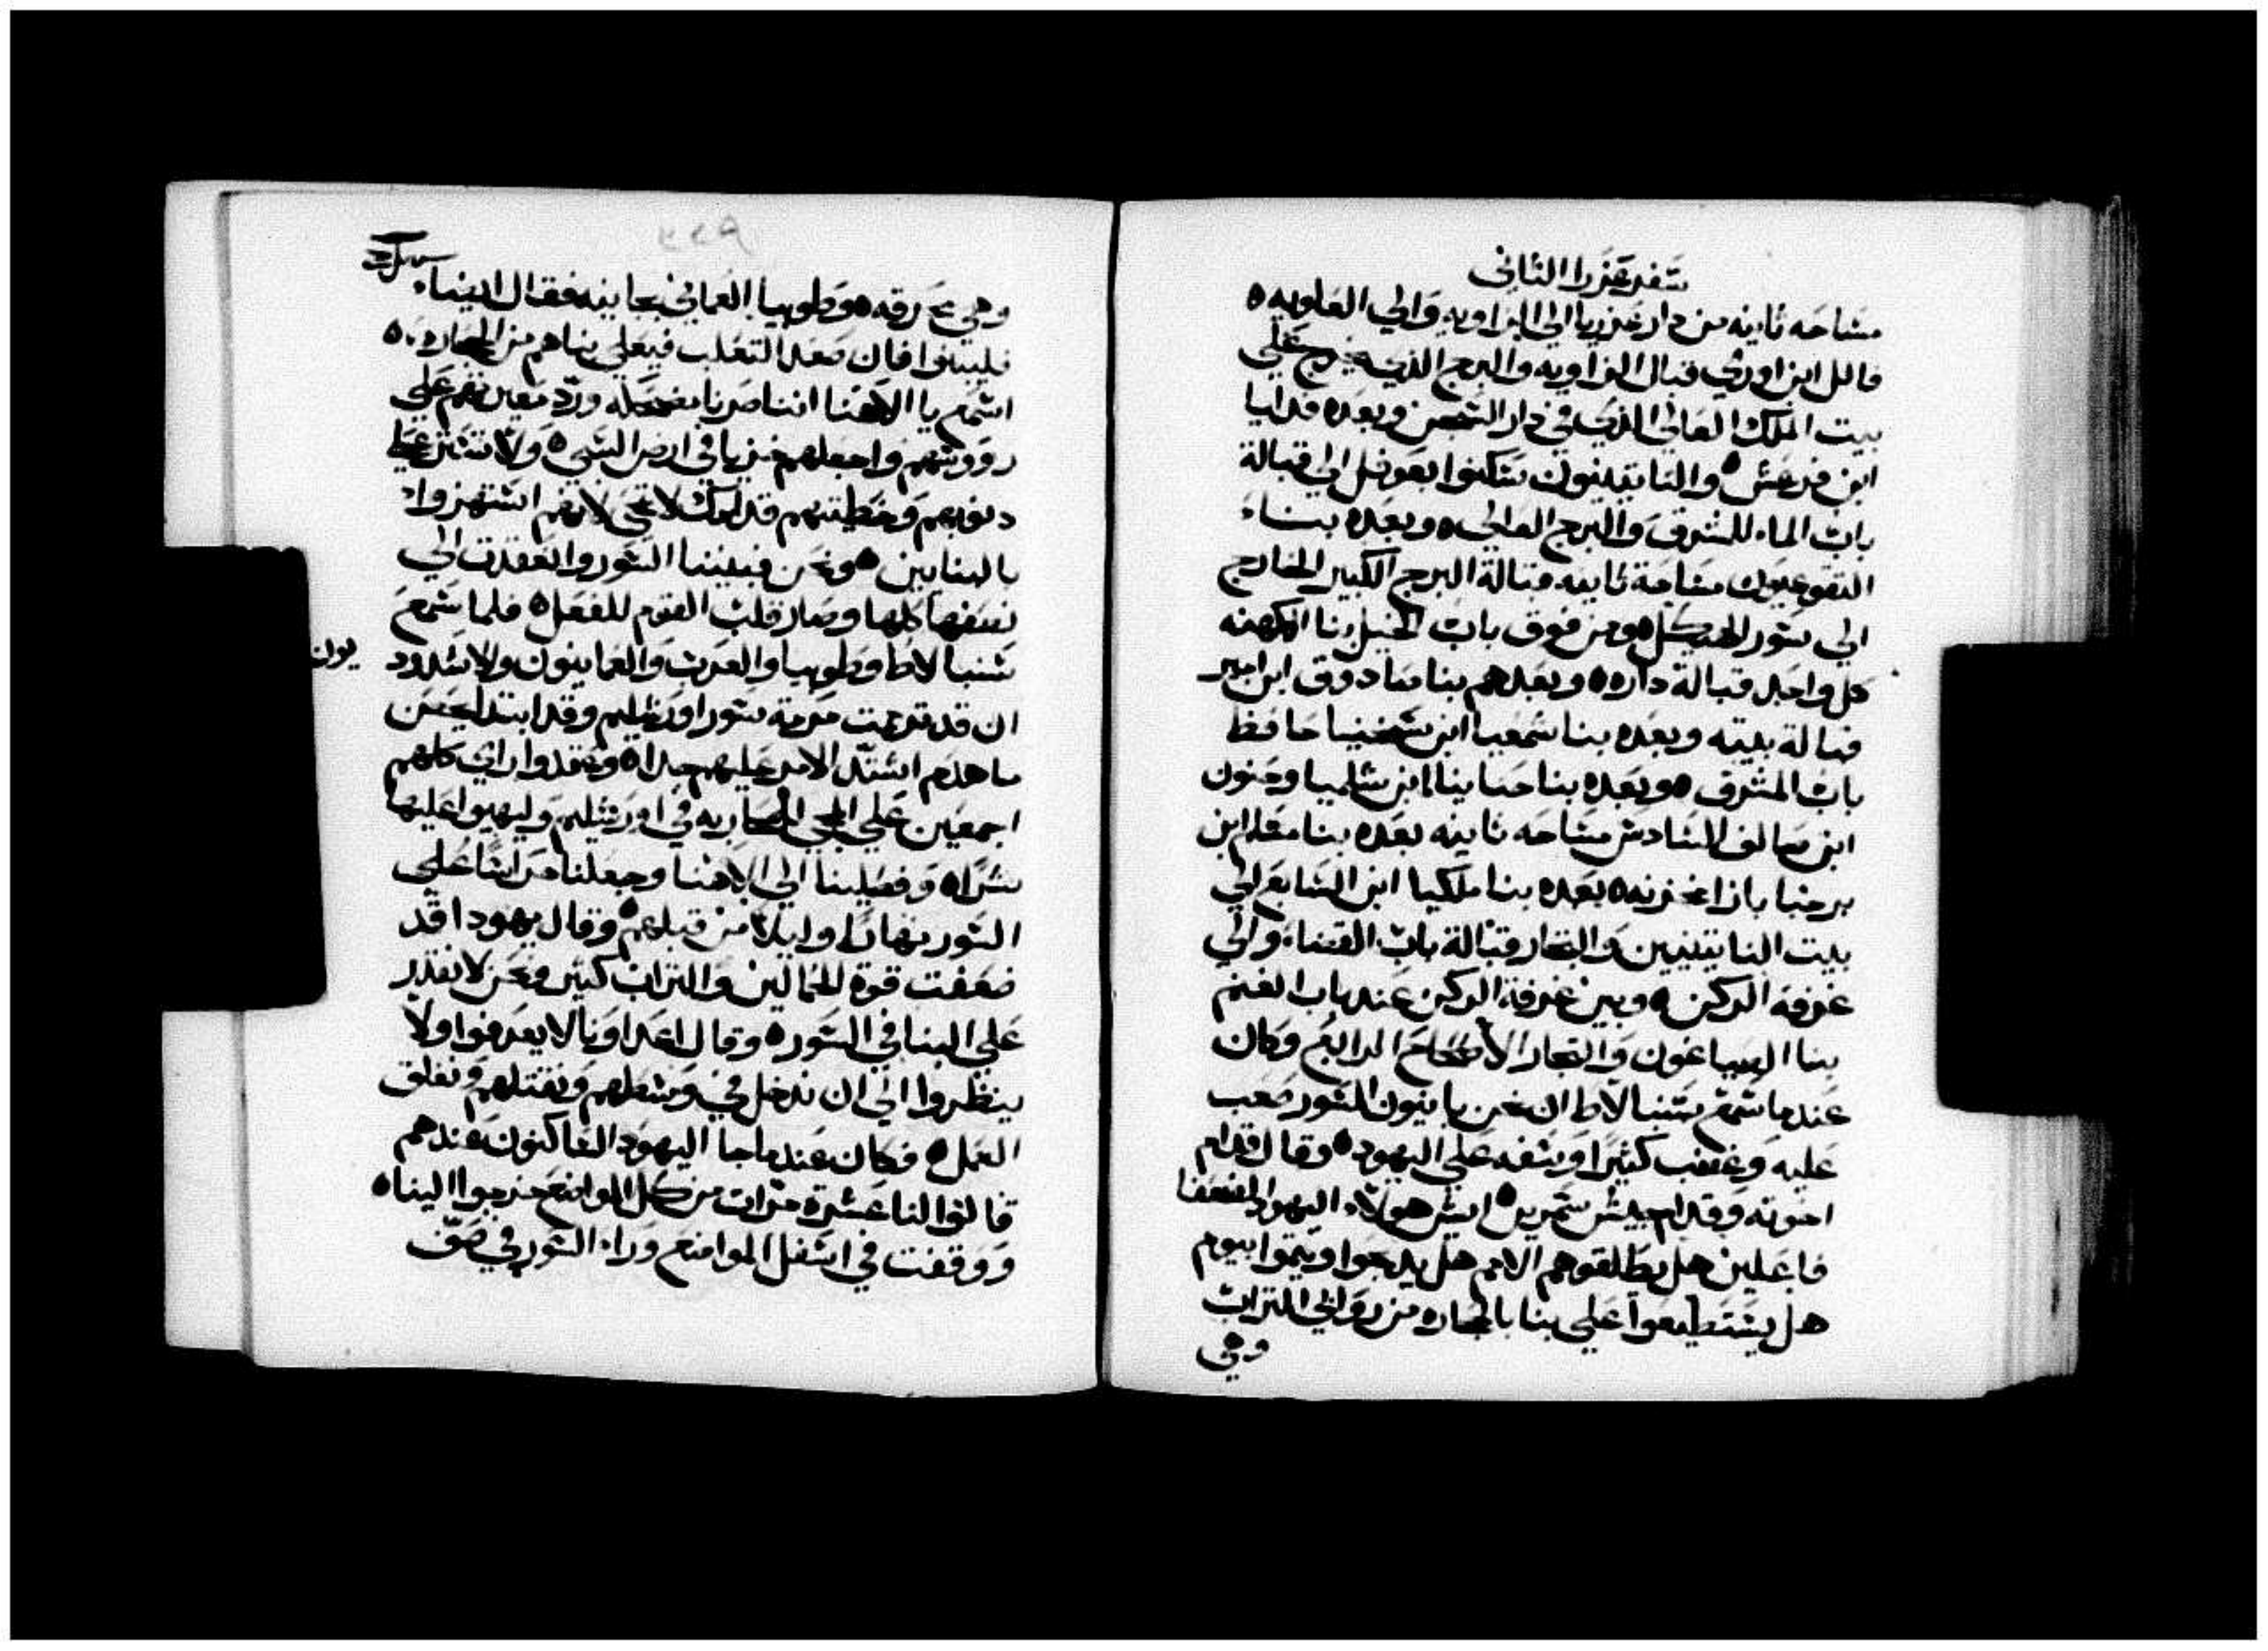 سفر عزرا الثاني
مساحه ثانيه من دار عزريا الي الزاويه والي العلويه ه
فالل ابن اوزي قبال الزاويه والبرج الذي يخرج علي
بيت الملك العالي الذي في دار السجن وبعده فدايا
ابن فرعش ه والناتينيون سكنوا بعوفل الي قبالة
باب الماء للشرق والبرج العالي ه وبعده بناء
التقوعيون مساحة ثانيه قبالة البرج الكبير الخارج
الي سور الهيكل ه ومن فوق باب الخيل بنا الكهنه
كل واحد قبالة داره ه وبعدهم بنا صادوق ابن امير
قبالة بيته وبعده بنا شمعيا ابن شخنيا حافظ
باب المشرق ه وبعده بنا حنانيا ابن شلميا وحنون
ابن صالف السادس مساحه ثانيه بعده بنا مشلام ابن
برخيا بازا مخزنه ه بعده بنا ملكيا ابن الصايغ الي
بيت الناتينيين والتجار قبالة باب القضاء والي
غرفة الركن ه وبين غرفة الركن عند باب الغنم
بنا الصياغون والتجار الاصحاح الرابع وكان
عندما سمع سنبالاط ان نحن بانيون السور صعب
عليه وغضب كثيرا وسفه علي اليهود ه وقال قدام
اخوته وقدام جيش سمرين ه ايش هولاء اليهود الضعفا
فاعلين هل يطلقوهم الامم هل يدبحوا ويتموا بيوم
هل يستطيعوا علي بنا بالحجاره من روابي التراب
وهي
٢٢٩
وهي محرقه ه وطوبيا العماني بجانبه فقال ايضاء
فليبنوا فان صعد التعلب فيعلي بناهم من الحجاره ه
اسمع يا الاهنا اننا صرنا مضحكه ورد تعييرهم علي
رووسهم واجعلهم خزيا في ارض السبي ه ولا تستر علي
دنوبهم وخطيتهم قدامك لا تمحي لانهم استهزوا
بالبنايين ه ونحن فبنينا السور وانعقدت الي
نصفها كلها وصار قلب القوم للفعل ه فلما سمع
سنبالاط وطوبيا والعرب والعمانيون والاشدود
يون
ان قد تمت مرمة سور اورشليم وقد ابتدا يحصن
ما هدم اشتد الامر عليهم جدا ه وعقدوا راي كلهم
اجمعين علي المجي المحاربه في اورشليم وليهيوا عليها
شرا ه وفصلينا الي الاهنا وجعلنا حراسا علي
السور نهارا وليلا من قبلهم ه وقال يهودا قد
ضعفت قوة الحمالين والتراب كتير ونحن لا نقدر
علي البنا في السور ه وقال اعداونا لا يعرفوا ولا
ينظروا الي ان ندخل في وسطهم ونقتلهم ونغلق
العمل ه فكان عندما جا اليهود الساكنون عندهم
قالوا لنا عشرة مرات من كل المواضع خرجوا الينا ه
ووقفت في اسفل المواضع وراء السور في صف